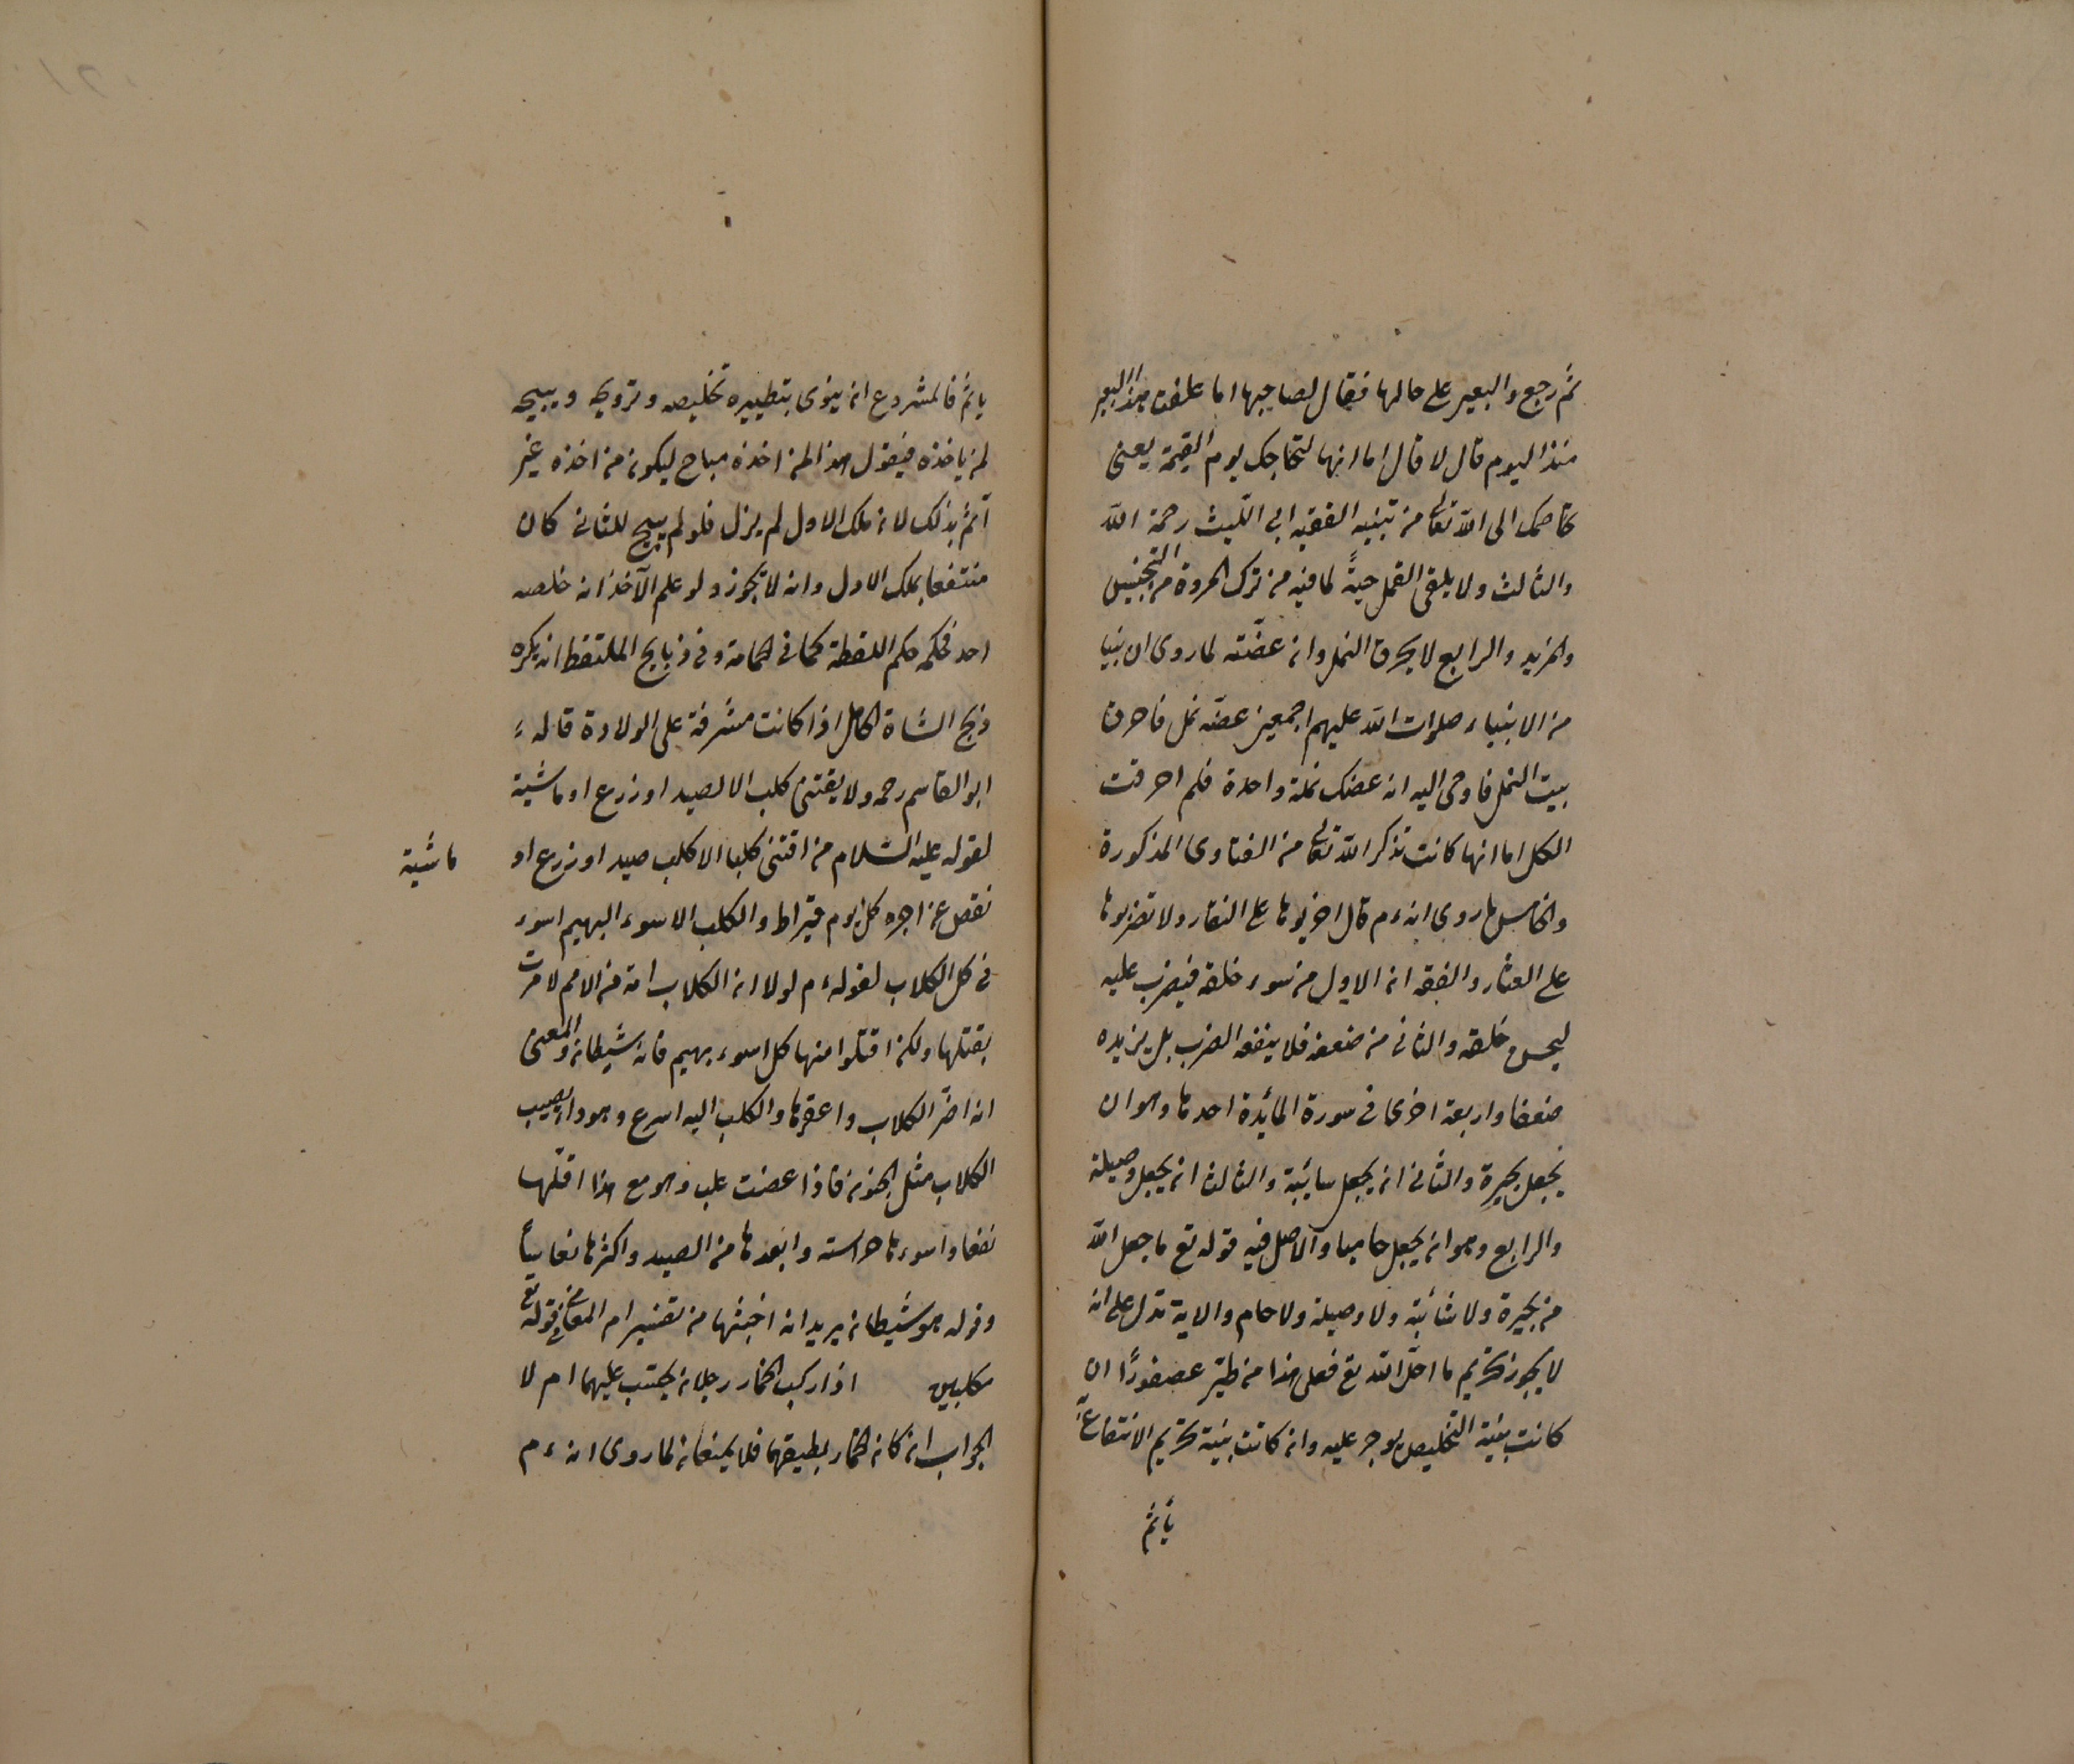 ثم رجع والبعير على حالها فقال لصاحبها اما علفت هذا البعير
منذ اليوم قال لا قال اما انها لتحاجك يوم القيمة يعنى
تخاصمك الى الله تعالى من تنبيه الفقيه ابى الليث رحمة الله
والثالث ولا يلقى القمل حيةً لما فيه من ترك المروة من التجنيس
والمزيد والرابع لا يحرق النمل وان عضّته لما روى ان نبيا
من الانبياء صلوات الله عليهم اجمعين عضّه نمل فاحرق
بيت النمل فاوحى اليه ان عضك نملة واحدة فلم احرقت
الكل اما انها كانت تذكر الله تعالى من الفتاوى المذكورة
والخامس ما روى انه ءم قال اضربوها على النفار ولا تضربوها
على العثار والفقه ان الاول من سوء خلقه فيضرب عليه
ليحسن خلقه والثانى من ضعفه فلا ينفعه الضرب بل يزيده
ضعفا واربعة اخرى فى سورة المائدة احدها وهو ان
يجعل بحيرة والثانى ان يجعل سائبة والثالث ان يجعل وصيلة
والرابع وهو ان يجعل حاميا والاصل فيه قوله تع ما جعل الله
من بحيرة ولا سائبة ولا وصيلة ولا حام والاية تدل على انه
لا يجوز تحريم ما احل الله تع فعلى هذا من طيّر عصفورًا ان
كانت بنية التخليص يوجر عليه وان كانت بنية تحريم الانتفاع
يأثم
ياثم فالمشروع ان ينوى بتطييره تخليصه وترويحه ويبيحه
لمن ياخذه فيقول هذا لمن اخذه مباح ليكون من اخذه غير
آثم بذلك لان ملك الاول لم يزل فلو لم يبيح للثانى كان
منتفعا بملك الاول وانه لا يجوز ولو علم الآخذ انه خلصه
احد فحكمه حكم اللقطة كما فى الحمامة وفى ذبايح الملتقط انه يكره
ذبح الشاة الحامل اذا كانت مشرفة على الولادة قاله
ابو القاسم رحمه ولا يقتنى كلب الا لصيد او زرع او ماشية
لقوله عليه السلام من اقتنى كلبا الا كلب صيد او زرع او ماشية
نقص من اجره كل يوم قيراط والكلب الاسود البهيم اسوء
فى كل الكلاب لقوله ءم لولا ان الكلاب امة من الامم لامرت
بقتلها ولكن اقتلوا منها كل اسود بهيم فانه شيطان والمعنى
انه اضرّ الكلاب واعقرها والكلب اليه اسرع وهو داء يصيب
الكلاب مثل الجنون فاذا عضت كلب وهو مع هذا اقلّها
نفعا واسوءها حراسته وابعدها من الصيد واكثرها نعاسًا
وقوله هو شيطان يريد انه اخبثها من تفسير ام المعانى فى قوله تع
مكلبين اذا ركب الحمار رجلان يحتسب عليهما ام لا
الجواب ان كان الحمار يطيقهما فلا يمنعان لما روى انه ءم